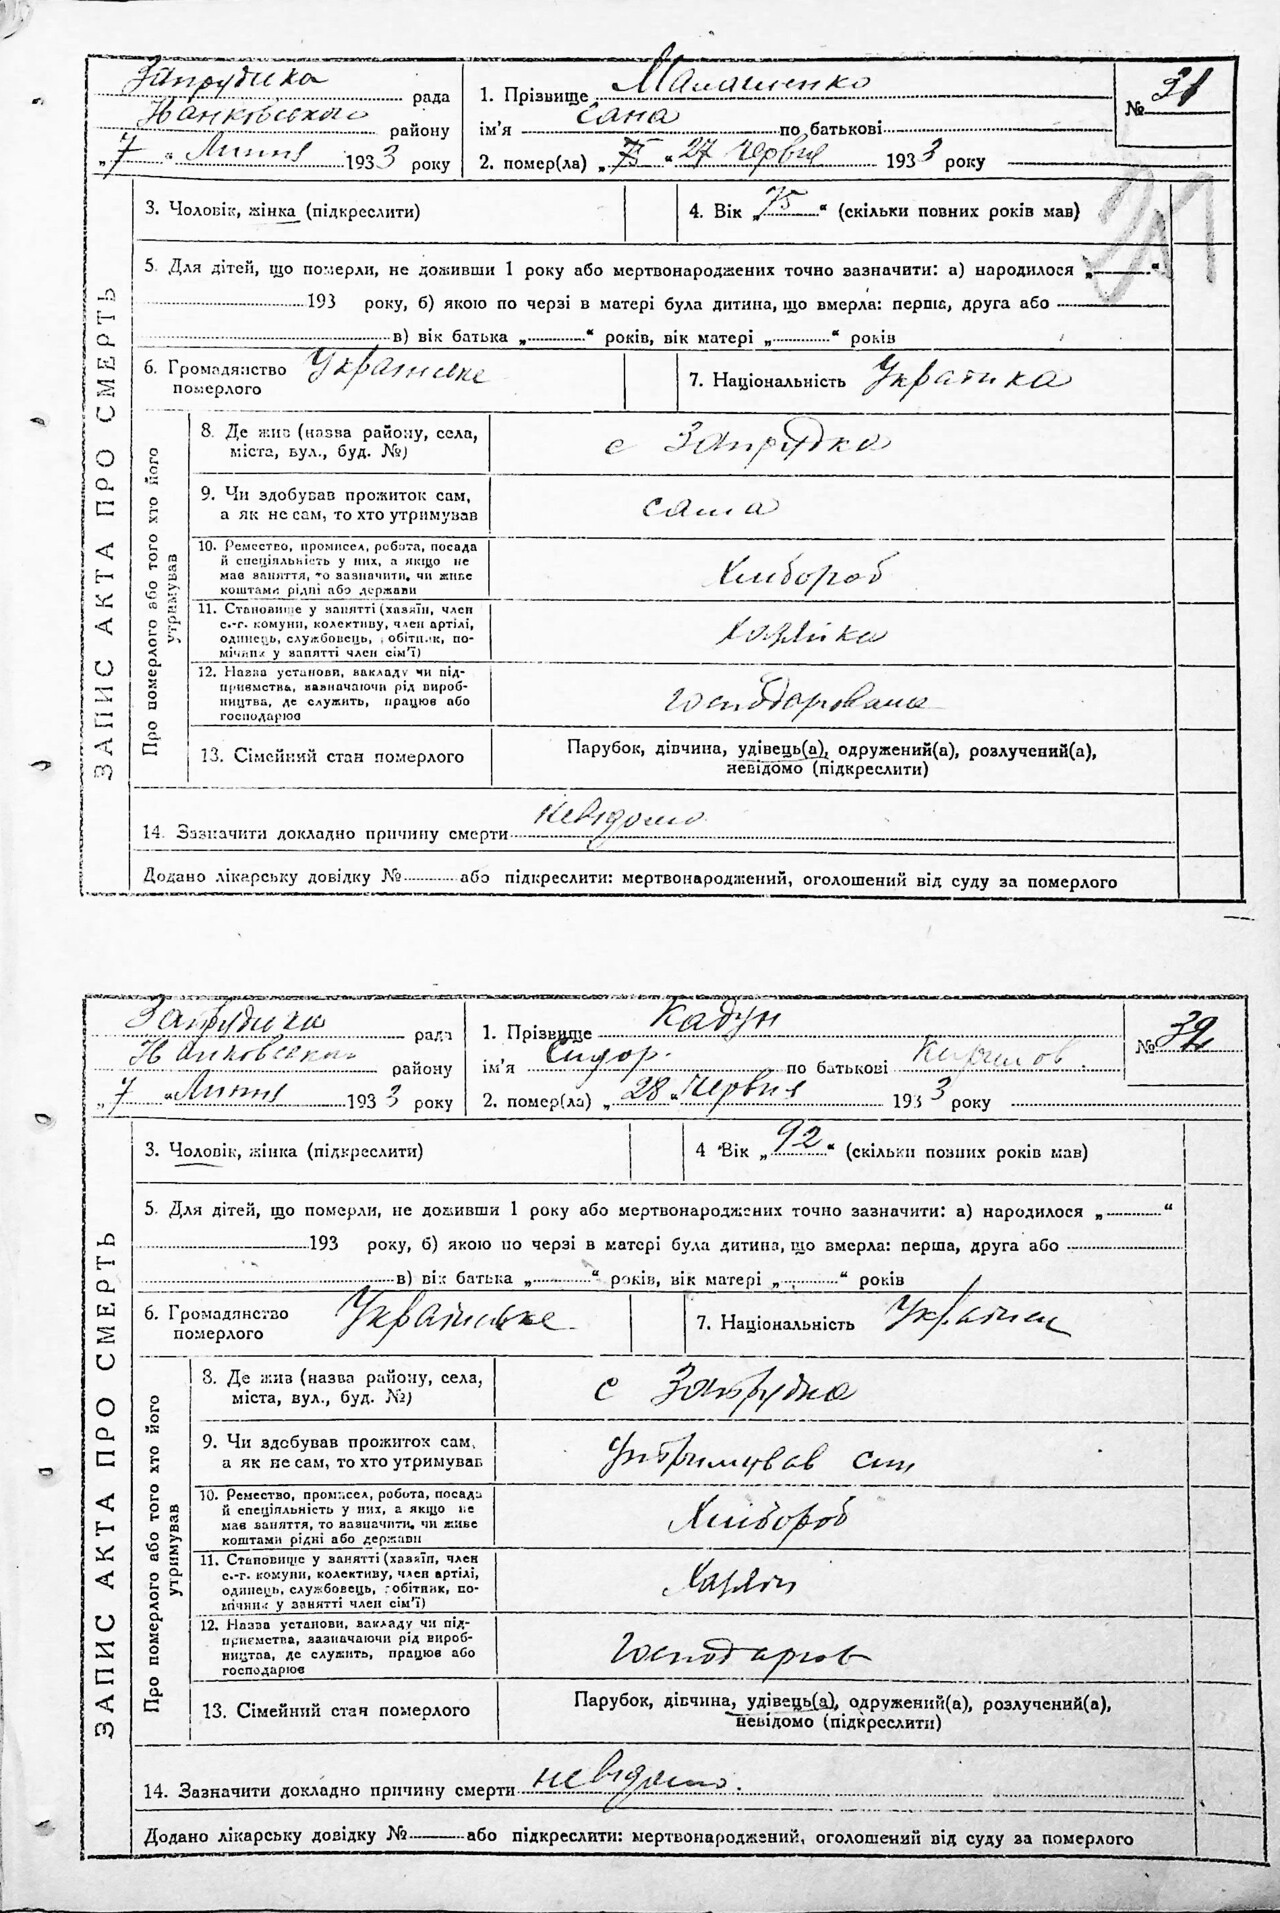 Запрудська рада
району
„7“ Липня 1933 року
1. Прізвище Малашенко
ім'я по батькові
2. помер(ла) „ “ 27 Червня 1933 року
№ 31
211
ЗАПИС АКТА ПРО СМЕРТЬ
3. Чоловік, жінка (підкреслити)
4. Вік „75“ (скільки повних років мав)
5. Для дітей, що померли, не доживши 1 року або мертвонароджених точно зазначити: а) народилося „ “
193 року, б) якою по черзі в матері була дитина, що вмерла: перша, друга або
в) вік батька „ “ років, вік матері „ “ років
6. Громадянство померлого Українське
7. Національність Українка
Про померлого або того хто його утримував
8. Де жив (назва району, села,
міста, вул., буд. №)
с Запрудка
9. Чи здобував прожиток сам,
а як не сам, то хто утримував
сама
10. Ремество, промисел, робота, посада
й спеціяльність у них, а якщо не
має заняття, то зазначити, чи живе
коштами рідні або держави
Хлібороб
11. Становище у занятті (хазяїн, член
с.-г. комуни, колективу, член артілі,
одинець, службовець, робітник, по-
мічник у занятті член сім'ї)
Хазяйка
12. Назва установи, закладу чи під-
приємства, зазначаючи рід вироб-
ництва, де служить, працює або
господарює
господарювала
13. Сімейний стан померлого
Парубок, дівчина, удівець(а), одружений(а), розлучений(а),
невідомо (підкреслити)
14. Зазначити докладно причину смерти невідомо
Додано лікарську довідку № або підкреслити: мертвонароджений, оголошений від суду за померлого
Запрудська рада
району
„7“ Липня 1933 року
1. Прізвище Кадун
ім'я Сидор. по батькові Кирилов.
2. помер(ла) „28“ Червня 1933 року
№ 32
ЗАПИС АКТА ПРО СМЕРТЬ
3. Чоловік, жінка (підкреслити)
4 Вік „92“ (скільки повних років мав)
5. Для дітей, що померли, не доживши 1 року або мертвонароджених точно зазначити: а) народилося „ “
193 року, б) якою по черзі в матері була дитина, що вмерла: перша, друга або
в) вік батька „ “ років, вік матері „ “ років
6. Громадянство померлого Українське
7. Національність Українец
Про померлого або того хто його утримував
8. Де жив (назва району, села,
міста, вул., буд. №)
с Запрудка
9. Чи здобував прожиток сам,
а як не сам, то хто утримував
Утримував син
10. Ремество, промисел, робота, посада
й спеціяльність у них, а якщо не
має заняття, то зазначити, чи живе
коштами рідні або держави
Хлібороб
11. Становище у занятті (хазяїн, член
с.-г. комуни, колективу, член артілі,
одинець, службовець, робітник, по-
мічник у занятті член сім'ї)
Хазяїн
12. Назва установи, закладу чи під-
приємства, зазначаючи рід вироб-
ництва, де служить, працює або
господарює
Господарюв
13. Сімейний стан померлого
Парубок, дівчина, удівець(а), одружений(а), розлучений(а),
невідомо (підкреслити)
14. Зазначити докладно причину смерти невідомо.
Додано лікарську довідку № або підкреслити: мертвонароджений, оголошений від суду за померлого